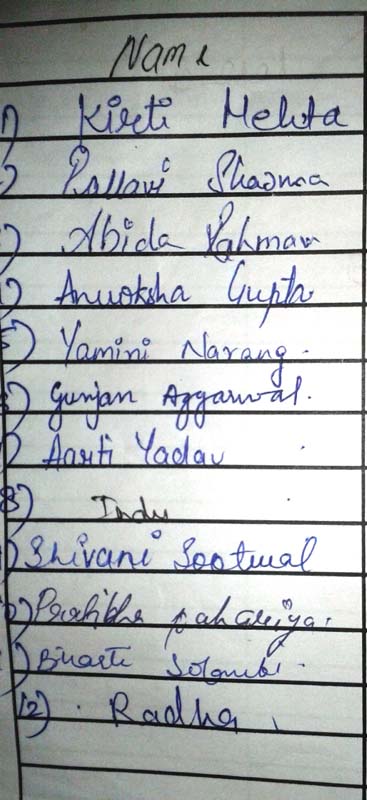 Name
1) Kirti Mehta
2) Pallavi Sharma
3) Abida Rahman
4) Anuraksha Gupta
5) Yamini Narang.
6) Gunjan Aggarwal.
7) Aarti Yadav
8) Indu
9) Shivani Sootwal
10) Pratibha pahadiya.
11) Bharti Solanki.
12) Radha